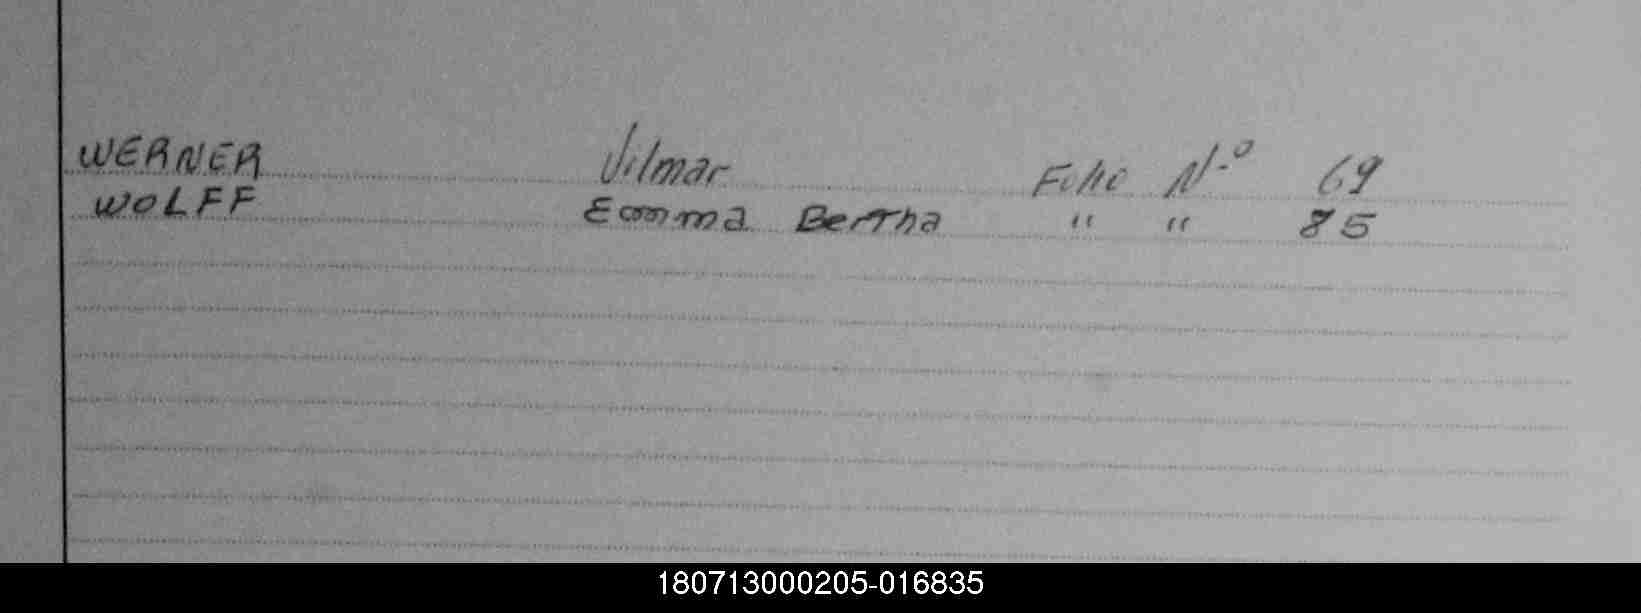 WERNER Vilmar Folio N.º 69
WOLFF Emma Bertha " " 85
180713000205-016835